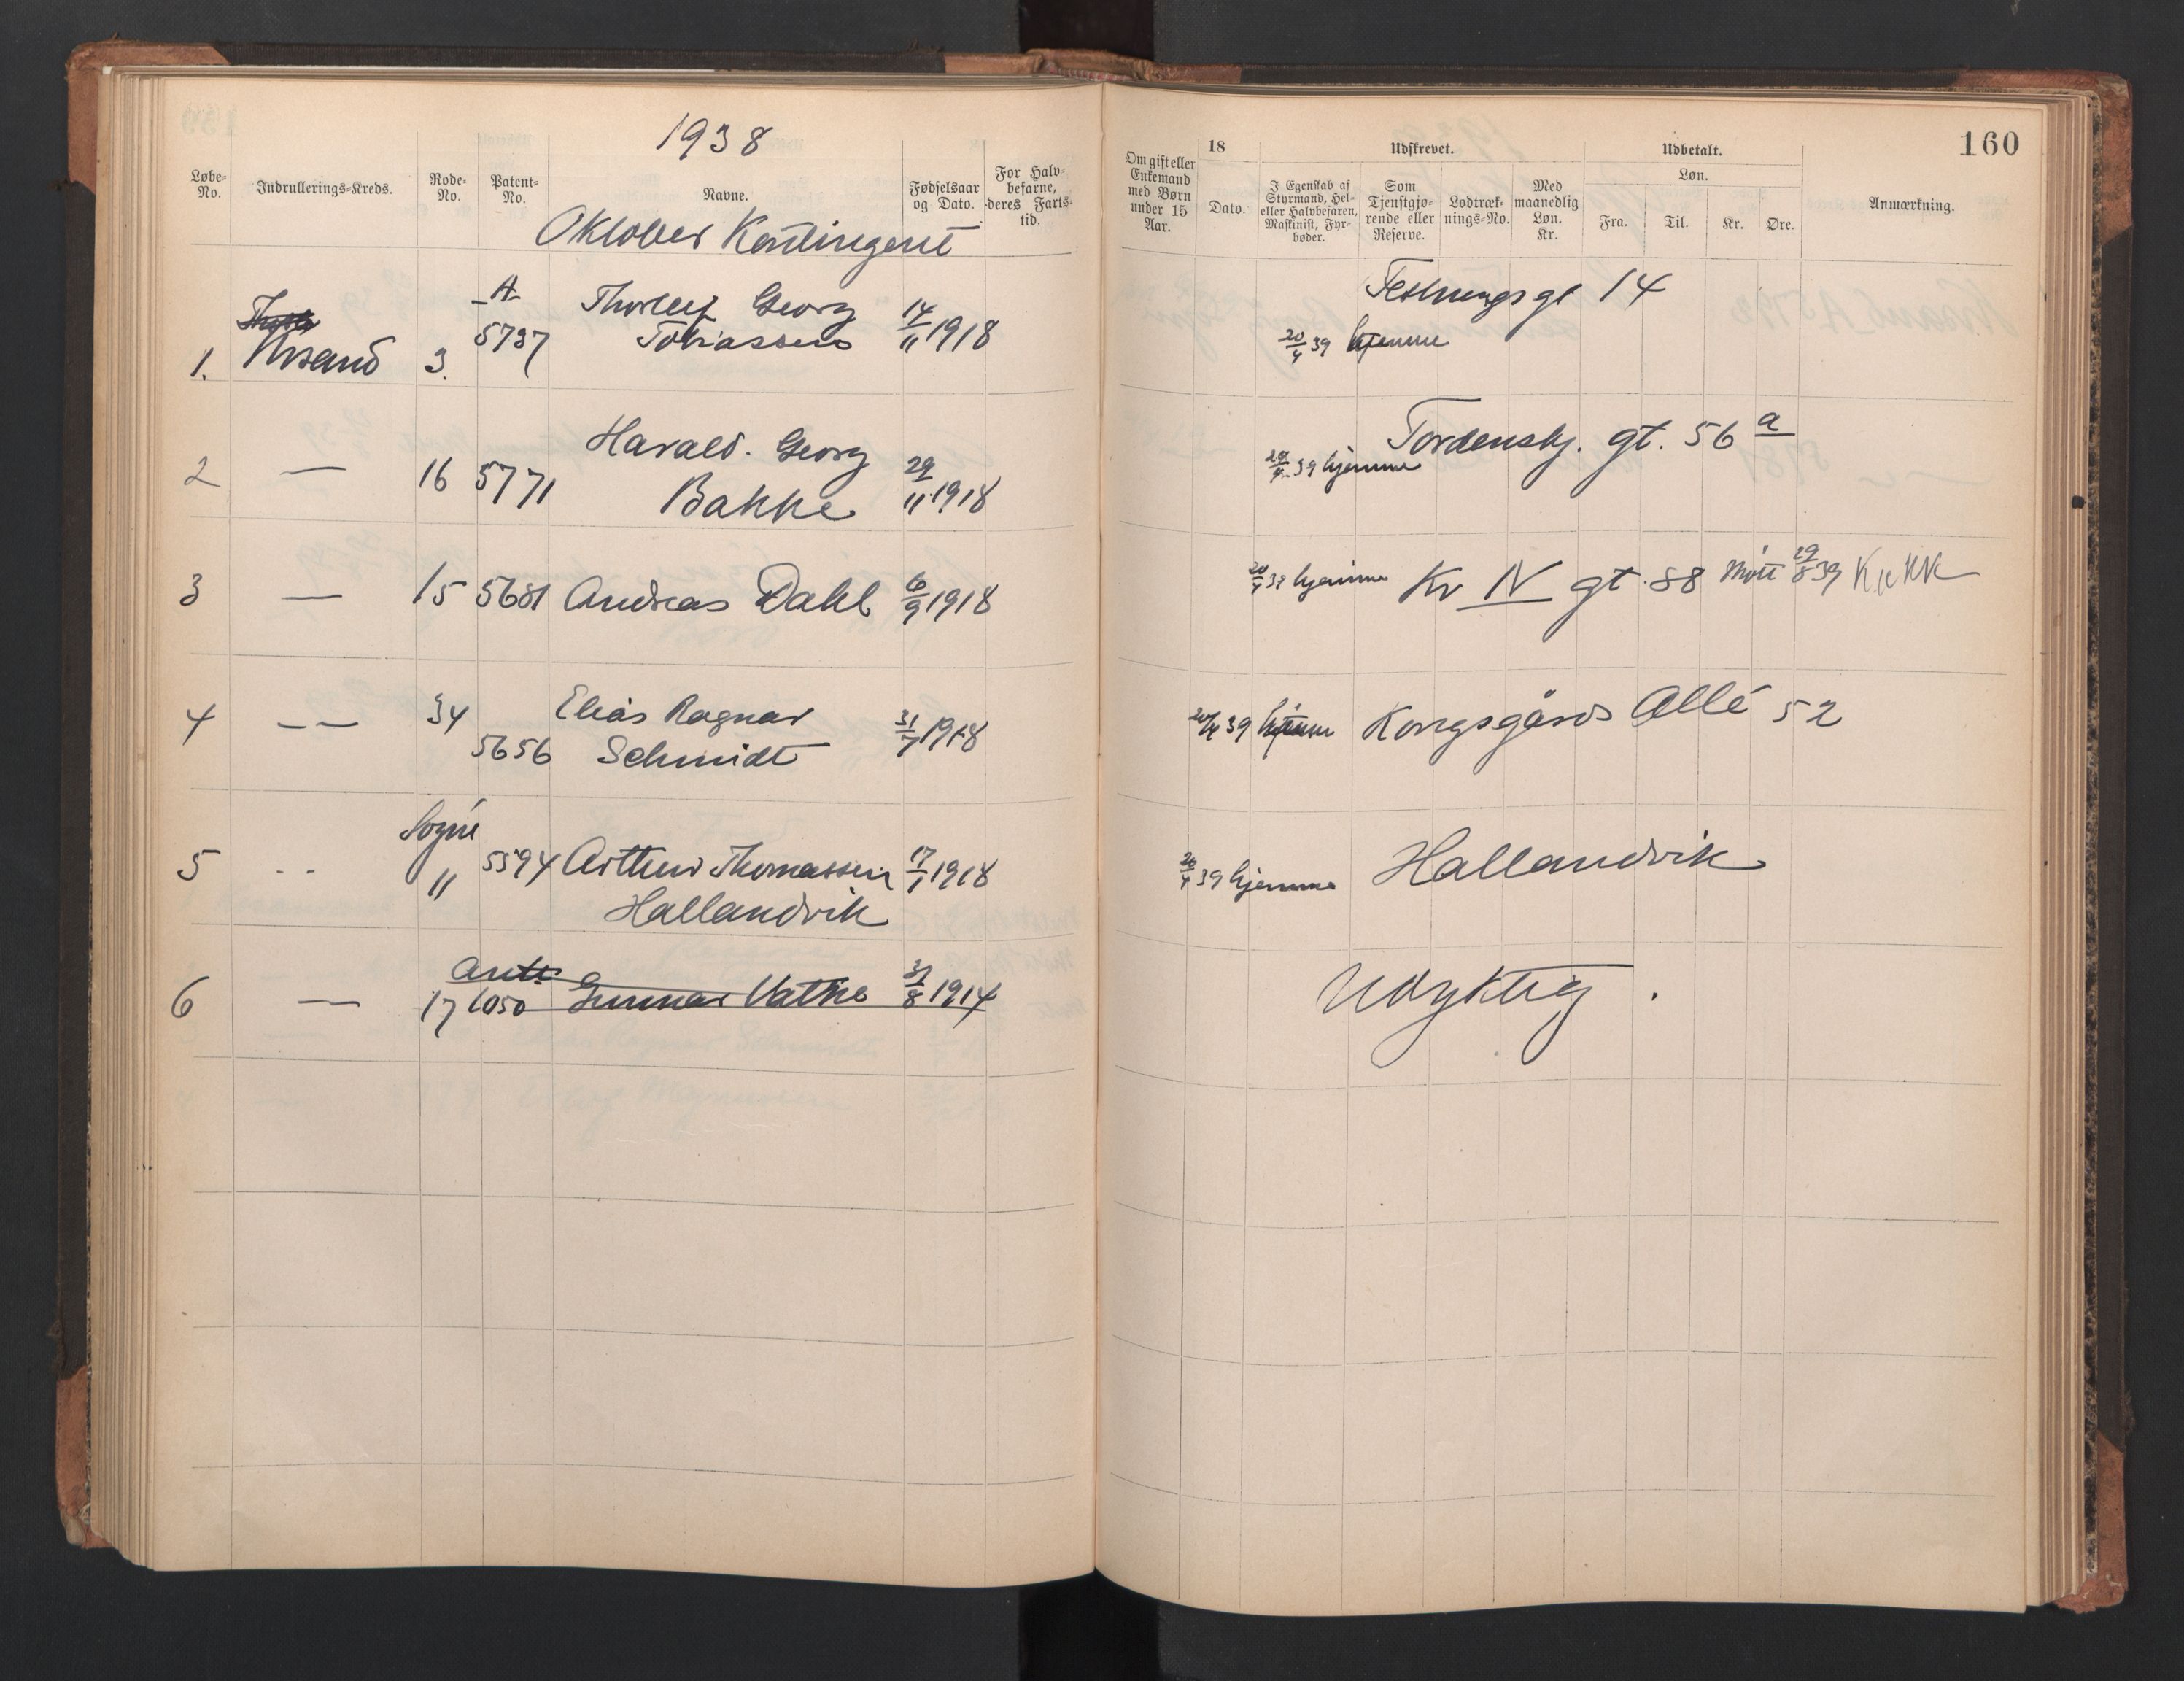 1938
Løbe-No.
Indrullerings-Kreds.
Rode-No.
Patent-No.
Navne.
Fødselsaar og Dato.
For Halvbefarne, deres Fartstid.
Oktober Kontingent
1. Krsand 3. A 5737 Thorleif Georg Tobiassen 14/11 1918
2 — 16 5771 Harald. Georg Bakke 29/11 1918
3 — 15 5681 Andreas Dahl 6/9 1918
4 — — 34 5656 Elias Ragnar Schmidt 31/7 1918
5 - - Søgne 11 5594 Arthur Thomassen Hallandvik 17/1 1918
6 — 17 1050 Gunnar Vatne 31/8 1914
160
Om gift eller Enkemand med Børn under 15 Aar.
18
Dato.
Udskrevet.
I Egenskab af Styrmand, Hel- eller Halvbefaren, Maskinist, Fyrbøder.
Som Tjenstgjørende eller Reserve.
Lodtræknings-No.
Med maanedlig Løn. Kr.
Udbetalt.
Løn.
Fra.
Til.
Kr.
Øre.
Anmærkning.
Festningsgt 14
20/4 39 hjemme
Tordenskj. gt. 56 a
20/4 39 hjemme
20/4 39 hjemme Kr IV gt. 88 Møtt 29/8 39
20/4 39 hjemme Kongsgård Allé 52
20/4 39 hjemme Hallandvik
Udyktig.